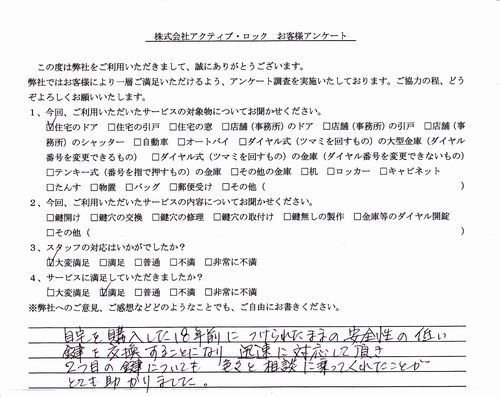 株式会社アクティブ・ロック　お客様アンケート
この度は弊社をご利用いただきまして、誠にありがとうございます。
弊社ではお客様により一層ご満足いただけるよう、アンケート調査を実施いたしております。ご協力の程、どう
ぞよろしくお願いいたします。
1、今回、ご利用いただいたサービスの対象物についてお聞かせください。
☑住宅のドア　□住宅の引戸　□住宅の窓　□店舗（事務所）のドア　□店舗（事務所）の引戸　□店舗（事
務所）のシャッター　□自動車　□オートバイ　□ダイヤル式（ツマミを回すもの）の大型金庫（ダイヤル
番号を変更できるもの）　□ダイヤル式（ツマミを回すもの）の金庫（ダイヤル番号を変更できないもの）
□テンキー式（番号を指で押すもの）の金庫　□その他の金庫　□机　□ロッカー　□キャビネット
□たんす　□物置　□バッグ　□郵便受け　□その他（　）
2、今回、ご利用いただいたサービスの内容についてお聞かせください。
□鍵開け　□鍵穴の交換　□鍵穴の修理　□鍵穴の取付け　□鍵無しの製作　□金庫等のダイヤル開錠
□その他（　）
3、スタッフの対応はいかがでしたか？
☑大変満足　□満足　□普通　□不満　□非常に不満
4、サービスに満足していただきましたか？
□大変満足　☑満足　□普通　□不満　□非常に不満
※弊社へのご意見、ご感想などどのようなことでも、ご自由にお書きください。
自宅を購入した18年前に つけられたままの安全性の低い
鍵を交換することになり 迅速に対応して頂き
2つ目の鍵についても 色々と相談に乗ってくれたことが
とても助かりました。